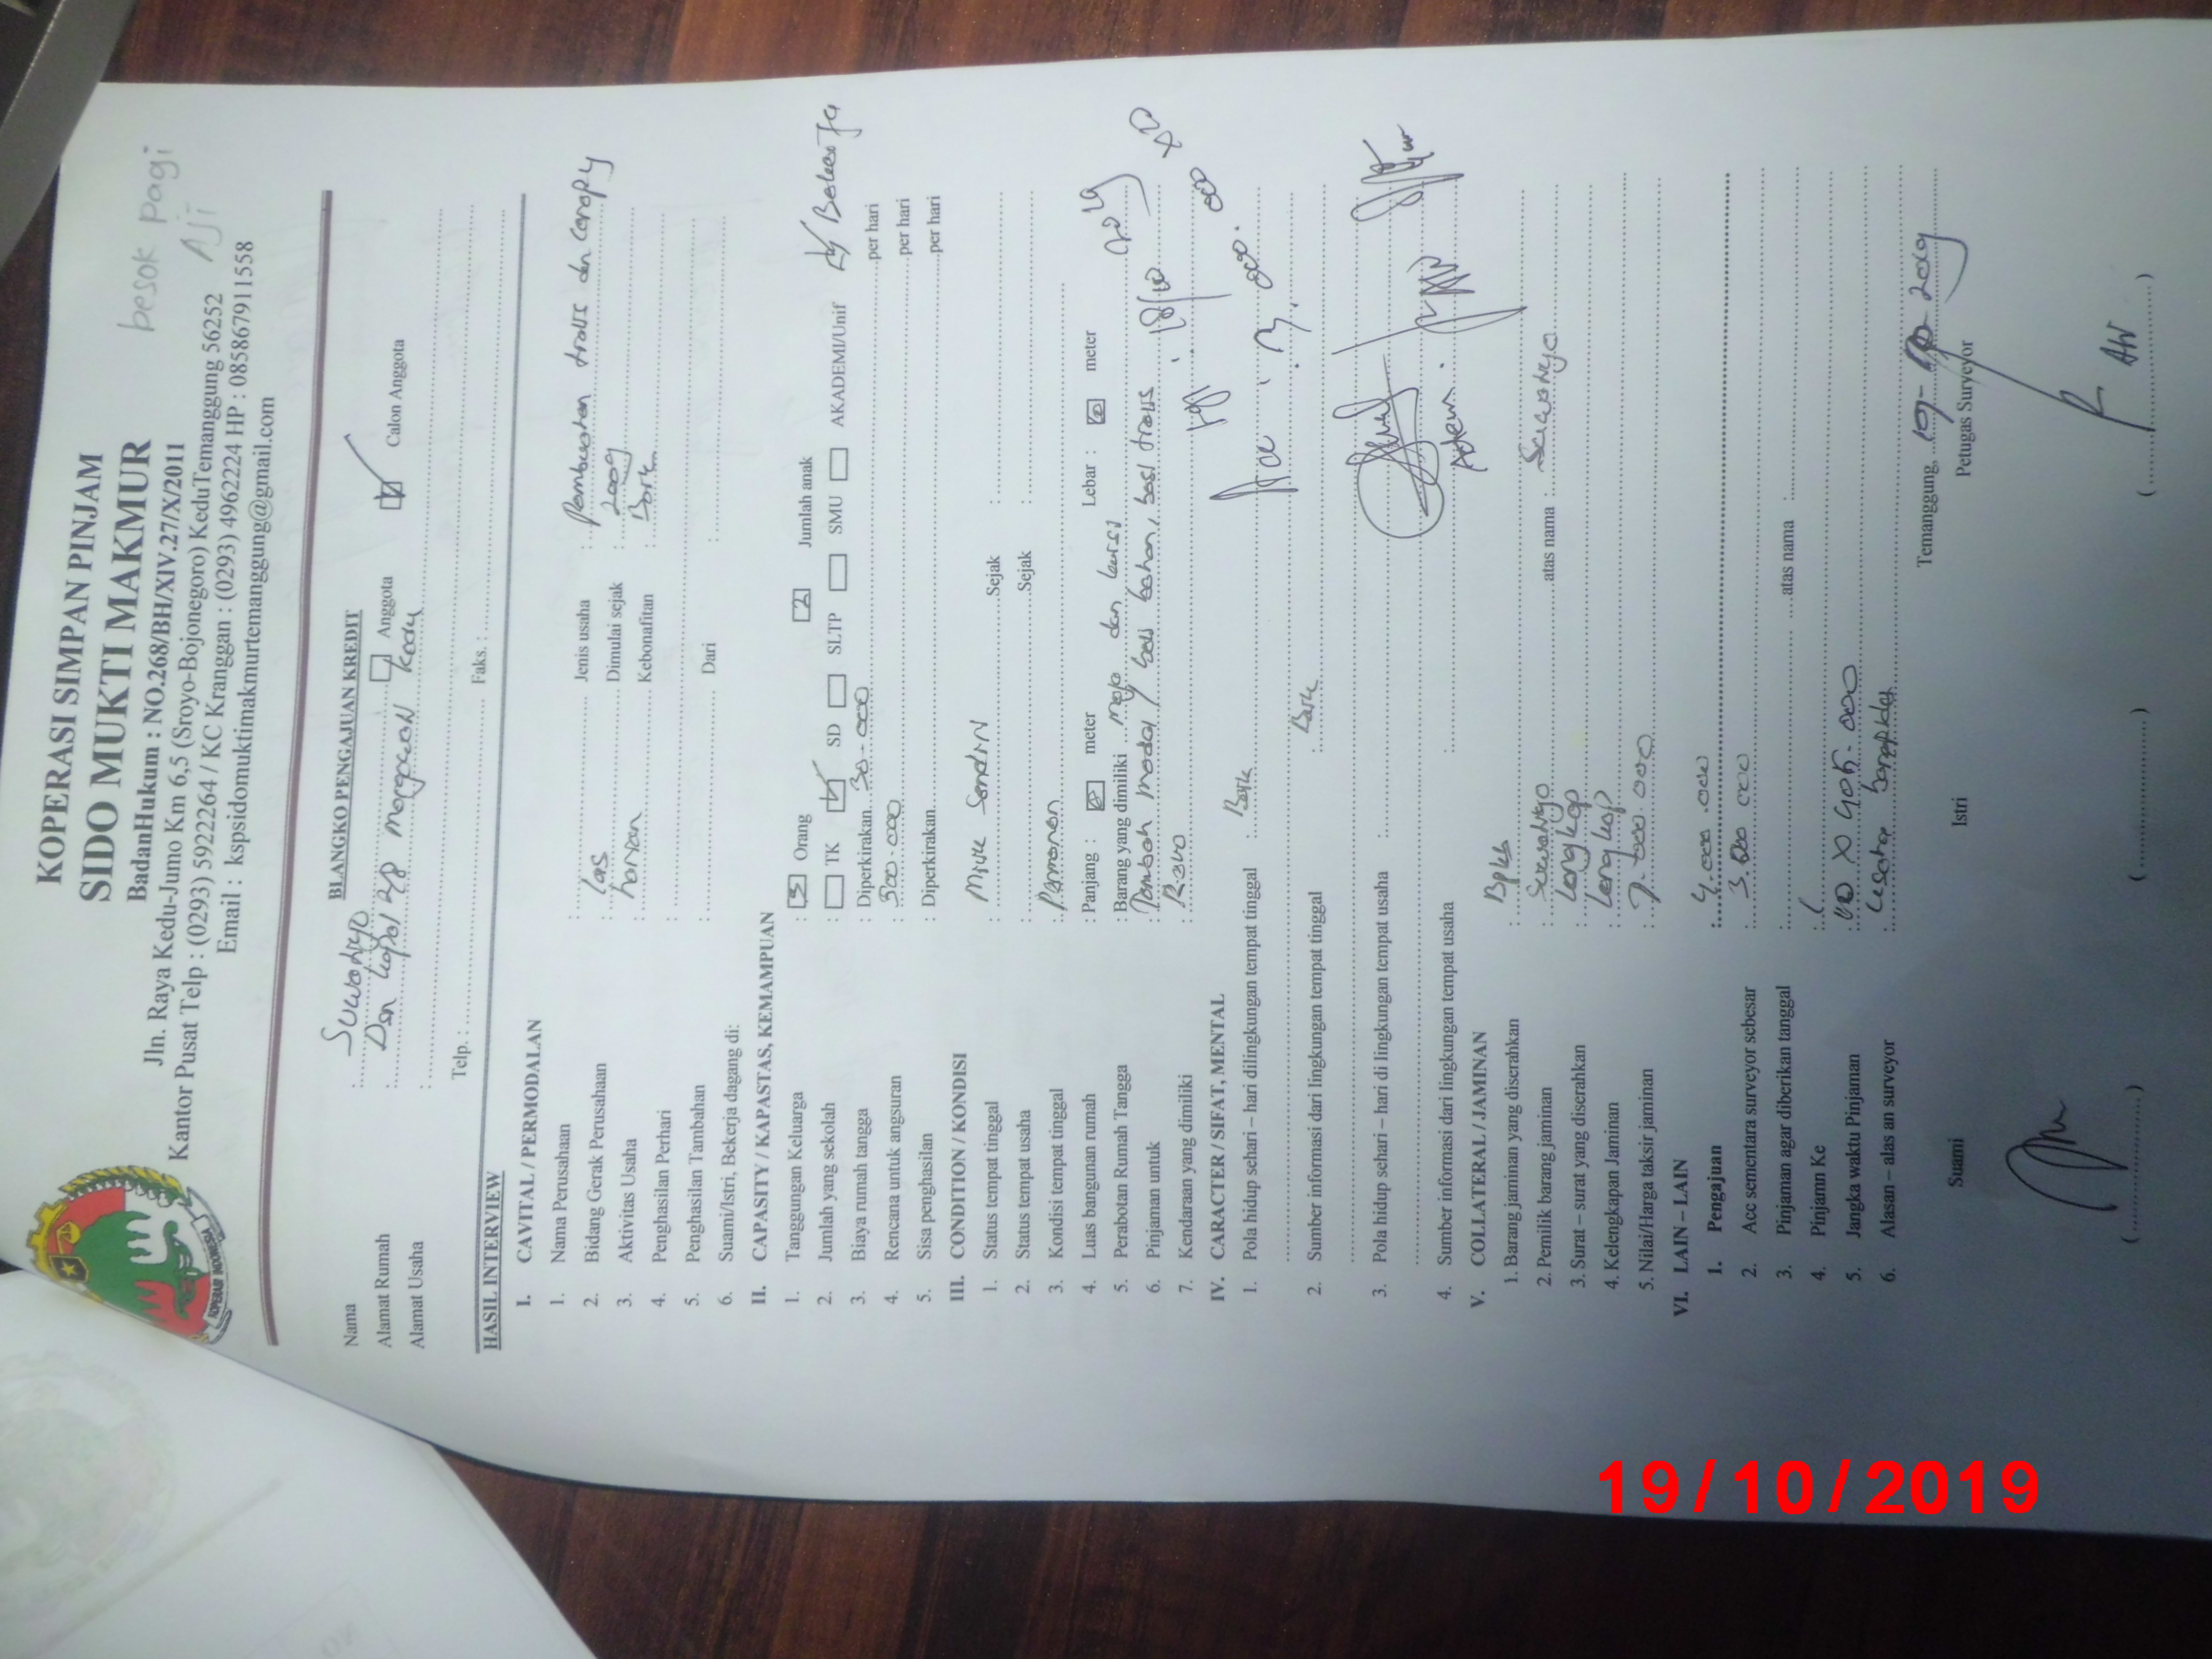 besok pagi
AJI
KOPERASI SIMPAN PINJAM
SIDO MUKTI MAKMUR
BadanHukum : NO.268/BH/XIV.27/X/2011
Jln. Raya Kedu-Jumo Km 6,5 (Sroyo-Bojonegoro) KeduTemanggung 56252
Kantor Pusat Telp : (0293) 5922264 / KC Kranggan : (0293) 4962224 HP : 085867911558
Email : kspsidomuktimakmurtemanggung@gmail.com
KOPERASI INDONESIA
BLANGKO PENGAJUAN KREDIT
Nama : Suwaryo Anggota Calon Anggota
Alamat Rumah : Dsn 2/8 Kedu
Alamat Usaha :
Telp. : Faks. :
HASIL INTERVIEW
I. CAVITAL / PERMODALAN
1. Nama Perusahaan : Jenis usaha : Pembuatan tralis dan Canopy
2. Bidang Gerak Perusahaan : las Dimulai sejak : 2009
3. Aktivitas Usaha : harian Kebonafitan : Baik
4. Penghasilan Perhari :
5. Penghasilan Tambahan
6. Suami/Istri, Bekerja dagang di: : Dari :
II. CAPASITY / KAPASTAS, KEMAMPUAN
1. Tanggungan Keluarga : 3 Orang 2 Jumlah anak
2. Jumlah yang sekolah : TK SD SLTP SMU AKADEMI/Unif Bekerja
3. Biaya rumah tangga : Diperkirakan 30.000 per hari
4. Rencana untuk angsuran : 300.000 per hari
5. Sisa penghasilan : Diperkirakan per hari
III. CONDITION / KONDISI
1. Status tempat tinggal : Milik Sendiri Sejak :
2. Status tempat usaha : Sejak :
3. Kondisi tempat tinggal : Permanen
4. Luas bangunan rumah : Panjang : 8 meter Lebar : 6 meter
5. Perabotan Rumah Tangga : Barang yang dimiliki meja dan kursi
6. Pinjaman untuk : Tambah modal / beli bahan, besi tralis
7. Kendaraan yang dimiliki :
18/10 2019
Acc
IV. CARACTER / SIFAT, MENTAL
1. Pola hidup sehari – hari dilingkungan tempat tinggal : Baik
2. Sumber informasi dari lingkungan tempat tinggal : Baik
3. Pola hidup sehari – hari di lingkungan tempat usaha :
4. Sumber informasi dari lingkungan tempat usaha :
V. COLLATERAL / JAMINAN
1. Barang jaminan yang diserahkan : Bpkb
2. Pemilik barang jaminan : Suwaryo atas nama : Suwaryo
3. Surat – surat yang diserahkan : Lengkap
4. Kelengkapan Jaminan : Lengkap
5. Nilai/Harga taksir jaminan : 7.000.000
VI. LAIN – LAIN
1. Pengajuan : 4.000.000
2. Acc sementara surveyor sebesar : 3.000 000
3. Pinjaman agar diberikan tanggal : atas nama :
4. Pinjamn Ke : 1
5. Jangka waktu Pinjaman : 10 X 405.000
6. Alasan – alas an surveyor : Usaha
Temanggung, 19-10-2019
Suami Istri Petugas Surveyor
(..............) (..............) (..............)
19/10/2019